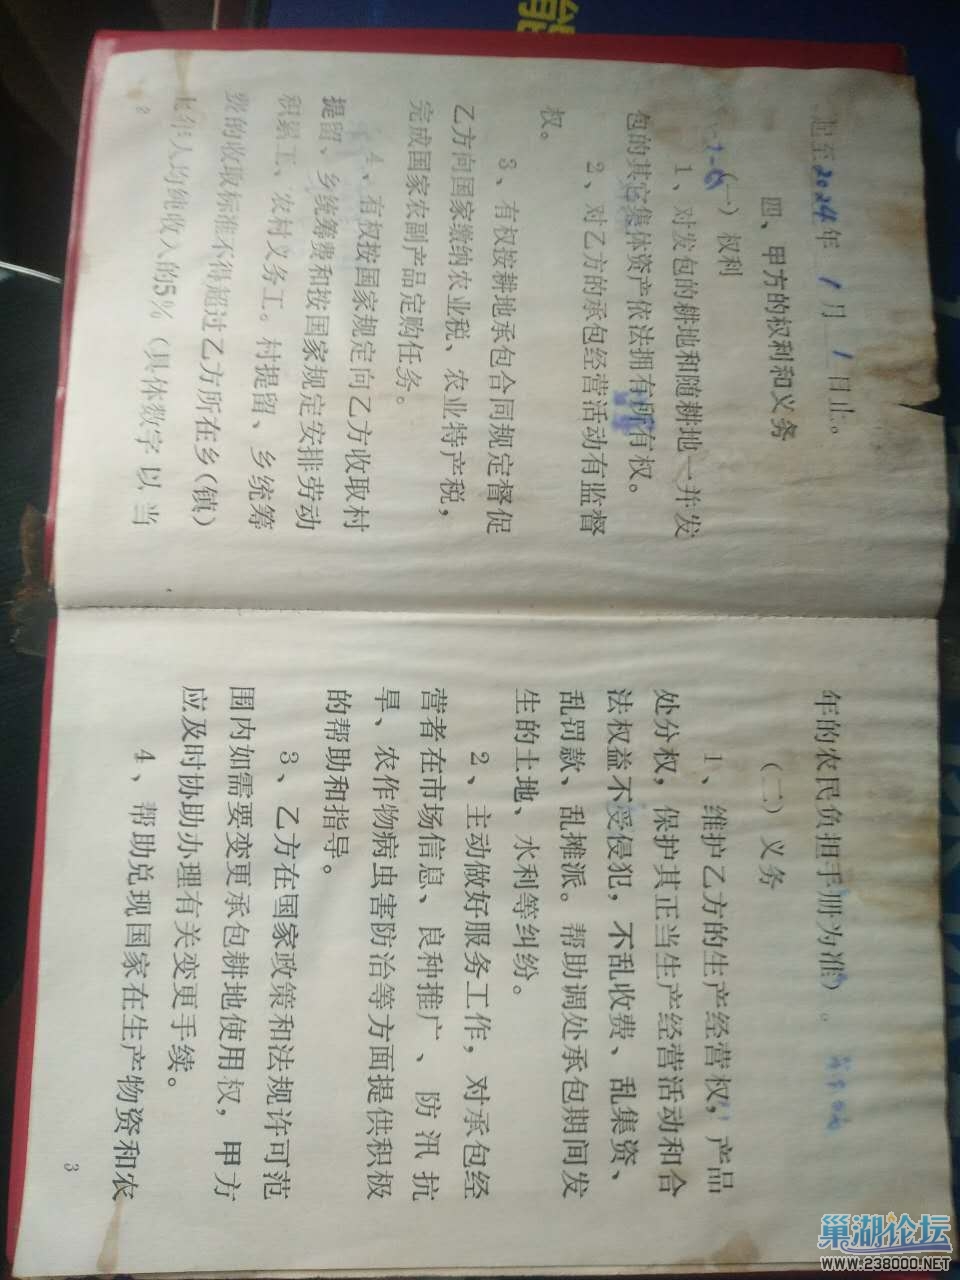 起至2024年 1月 1日止。
四、甲方的权利和义务
（一）权利
1、对发包的耕地和随耕地一并发
包的其它集体资产依法拥有所有权。
2、对乙方的承包经营活动有监督
权。
3、有权按耕地承包合同规定督促
乙方向国家缴纳农业税、农业特产税，
完成国家农副产品定购任务。
4、有权按国家规定向乙方收取村
提留、乡统筹费和按国家规定安排劳动
积累工、农村义务工。村提留、乡统筹
费的收取标准不得超过乙方所在乡（镇）
上年人均纯收入的5%（具体数字以当
2
年的农民负担手册为准）。
（二）义务
1、维护乙方的生产经营权，产品
处分权，保护其正当生产经营活动和合
法权益不受侵犯，不乱收费、乱集资、
乱罚款、乱摊派。帮助调处承包期间发
生的土地、水利等纠纷。
2、主动做好服务工作，对承包经
营者在市场信息、良种推广、防汛抗
旱、农作物病虫害防治等方面提供积极
的帮助和指导。
3、乙方在国家政策和法规许可范
围内如需要变更承包耕地使用权，甲方
应及时协助办理有关变更手续。
4、帮助兑现国家在生产物资和农
3
巢湖论坛
www.238000.NET